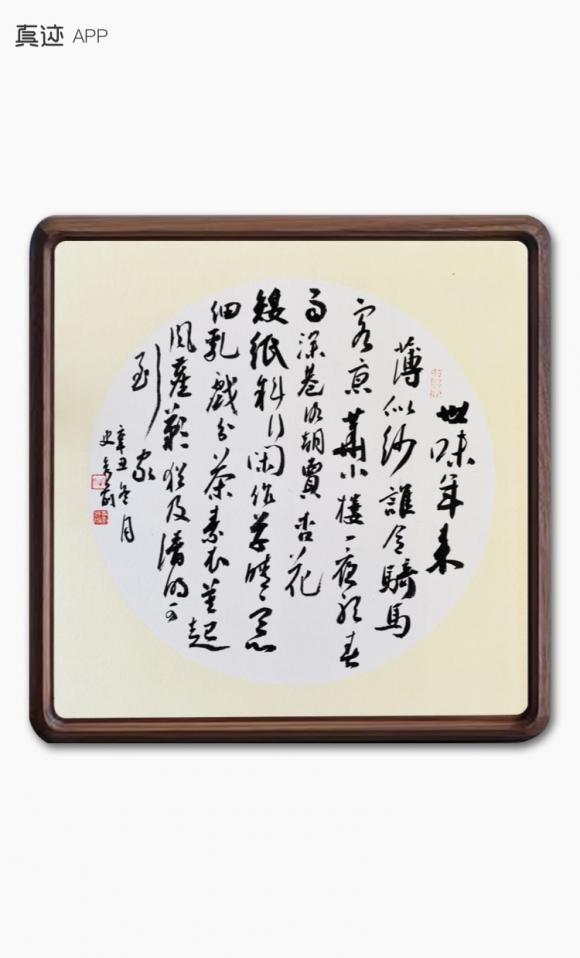 真迹 APP
世味年来
薄似纱誰令騎馬
客京華小樓一夜聽春
雨深巷明朝賣杏花
矮紙斜行闲作草晴窗
细乳戲分茶素衣莫起
風塵歎猶及清明可
到家
辛丑冬月
史